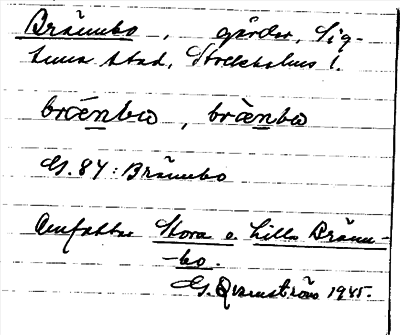 Brännbo, gårdar, Sig-
tuna stad, Stockholms l.
bræ̀nbω, bræ̀nbω
GS. 84: Brännbo
Omfattar Stora o. Lilla Bränn-
-bo.
G. Qvarnström 1945.